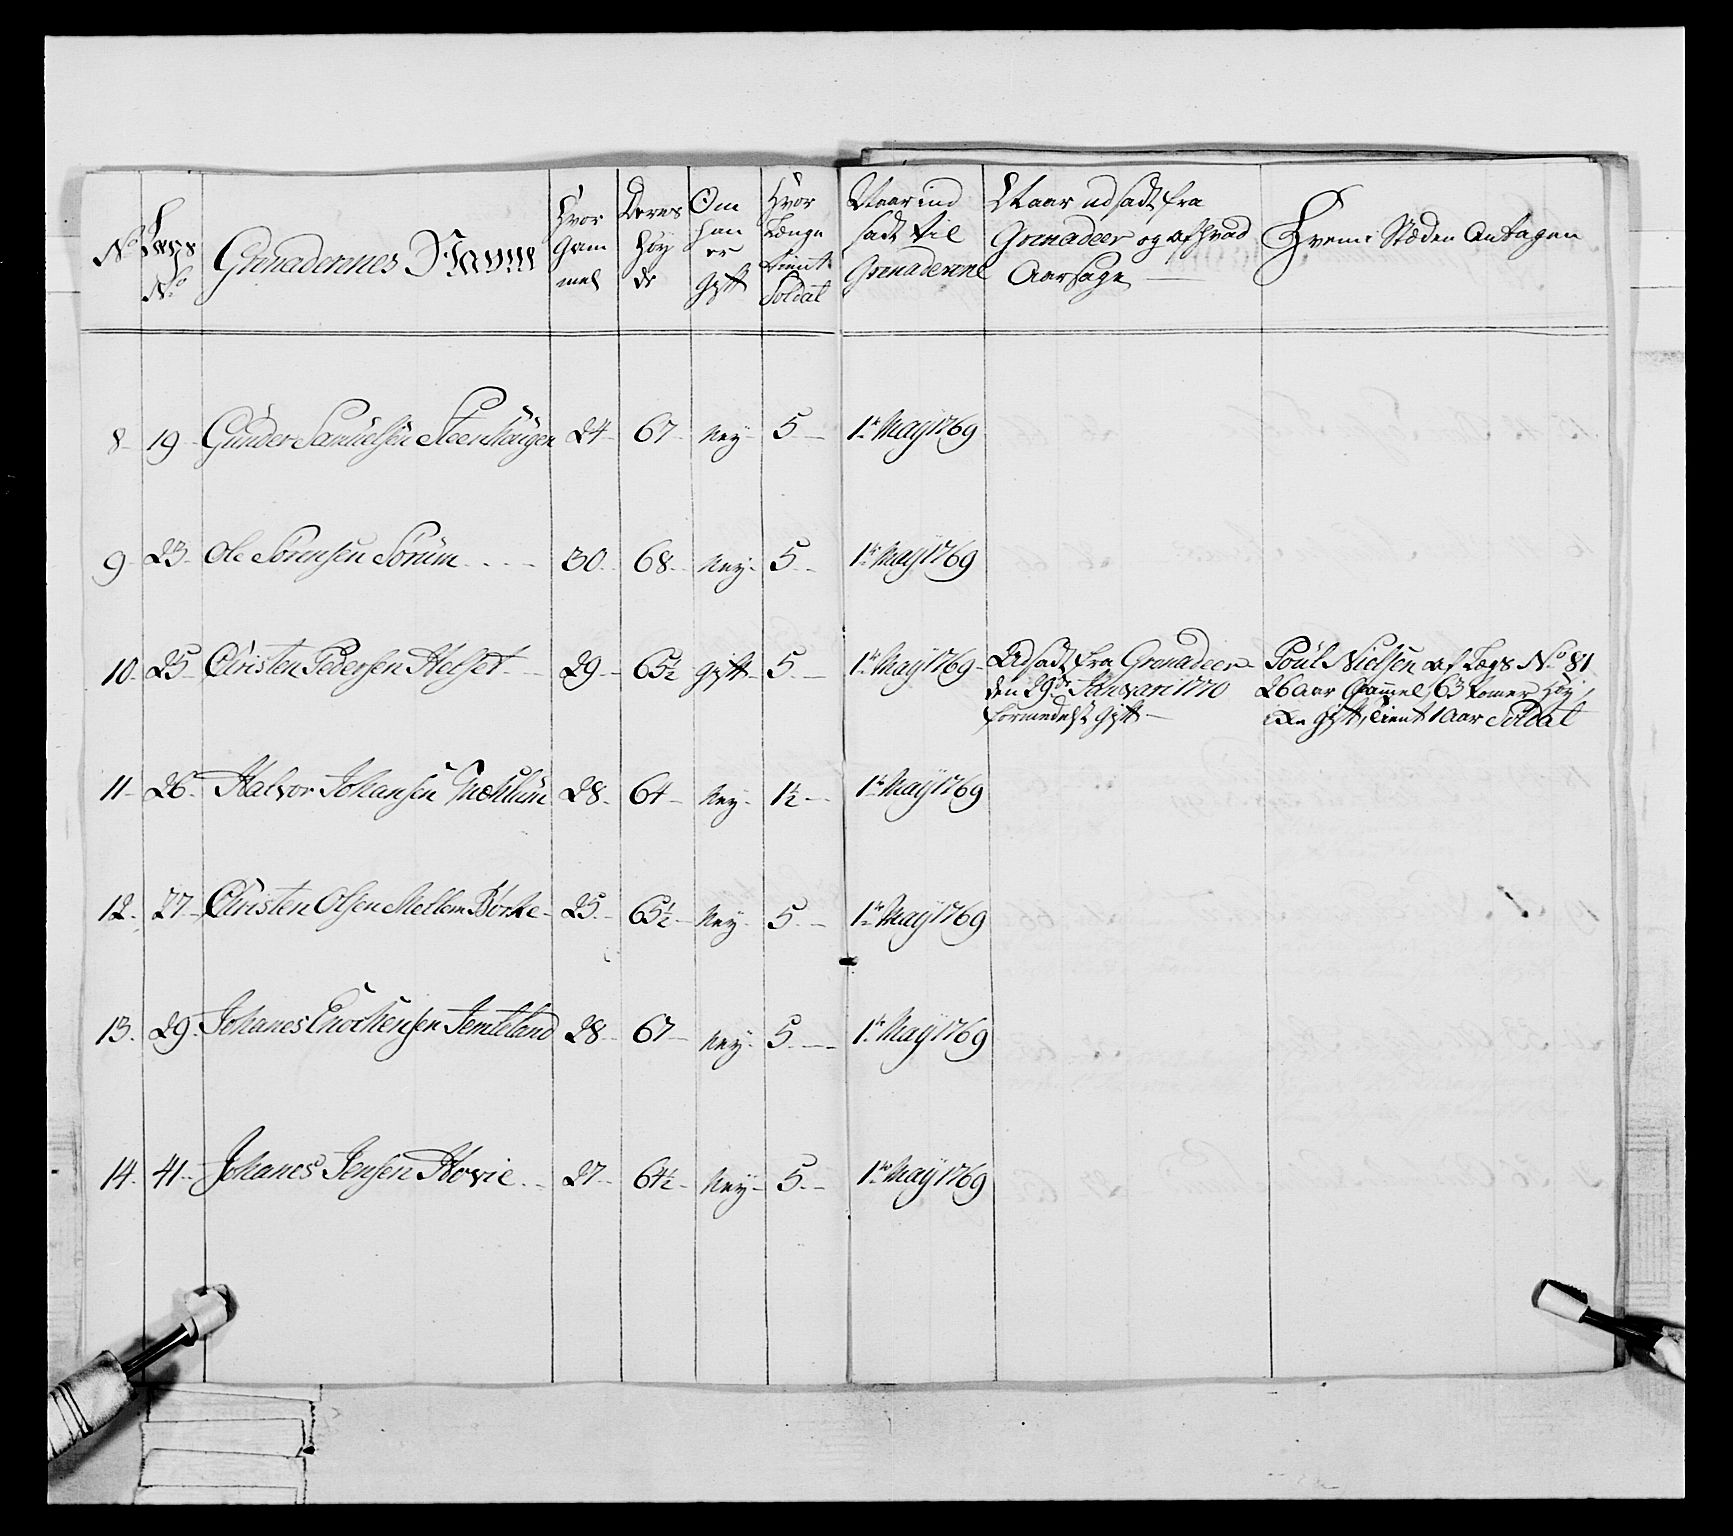 No
Lægs No
Grenaderenes Navne
Hvor gam mel
Deres Høy de
Om han er gift
Hvor Længe tient Soldat
Naar ind sadt til Grenaderene
Naar udsadt fra Grenadeer og af hvad Aarsage
Hvem i Stæden Antagen
8 19 Gunder Samuelsen Steenhougen 24 67 Ney 5 1te May 1769
9 23 Ole Sørensen Sørum 30 68 Ney 5 1te May 1769
10 25 Christen Pedersen Helset 29 65½ gift 5 1te May 1769 Udsadt fra Grenadeer Poul Nielsen af Lægs No 81
den 29de Januari 1770 26 aar Gammel, 63 tomer Høy,
formedelst gift ikke gift, tient 1 aar Soldat
11 26 Halvor Johansen 28 64 Ney 1½ 1te May 1769
12 27 Christen Olsen Mellem Borke 25 65½ Ney 5 1te May 1769
13 29 Johanes Enochensen Jemteland 28 67 Ney 5 1te May 1769
14 41 Johanes Jensen Hovie 27 64½ Ney 5 1te May 1769